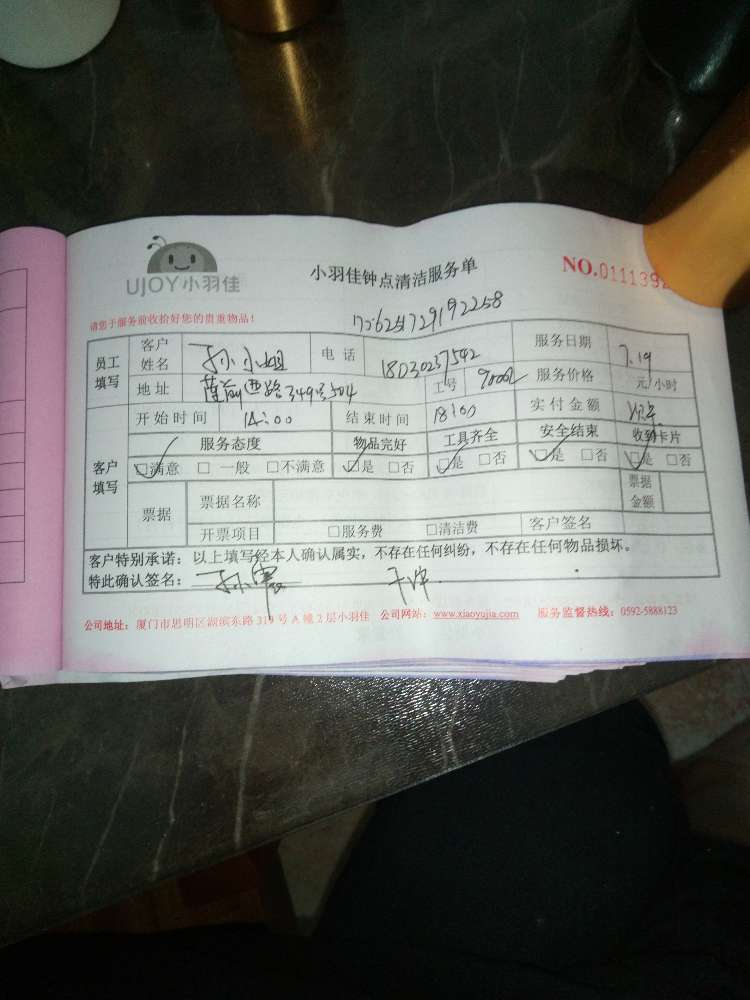 UJOY小羽佳
小羽佳钟点清洁服务单
NO.011139
请您于服务前收拾好您的贵重物品!
员工填写 客户姓名 孙小姐 电话 18030237542 服务日期 7.19
地址 莲前西路349号504 工号 服务价格 元/小时
开始时间 14:00 结束时间 18:00 实付金额
客户填写 服务态度 物品完好 工具齐全 安全结束 收到卡片
☑满意 □一般 □不满意 ☑是 □否 ☑是 □否 ☑是 □否 ☑是 □否
票据 票据名称 票据金额
开票项目 □服务费 □清洁费 客户签名
客户特别承诺：以上填写经本人确认属实，不存在任何纠纷，不存在任何物品损坏。
特此确认签名：
公司地址：厦门市思明区湖滨东路319号A幢2层小羽佳 公司网站：www.xiaoyujia.com 服务监督热线：0592-5888123